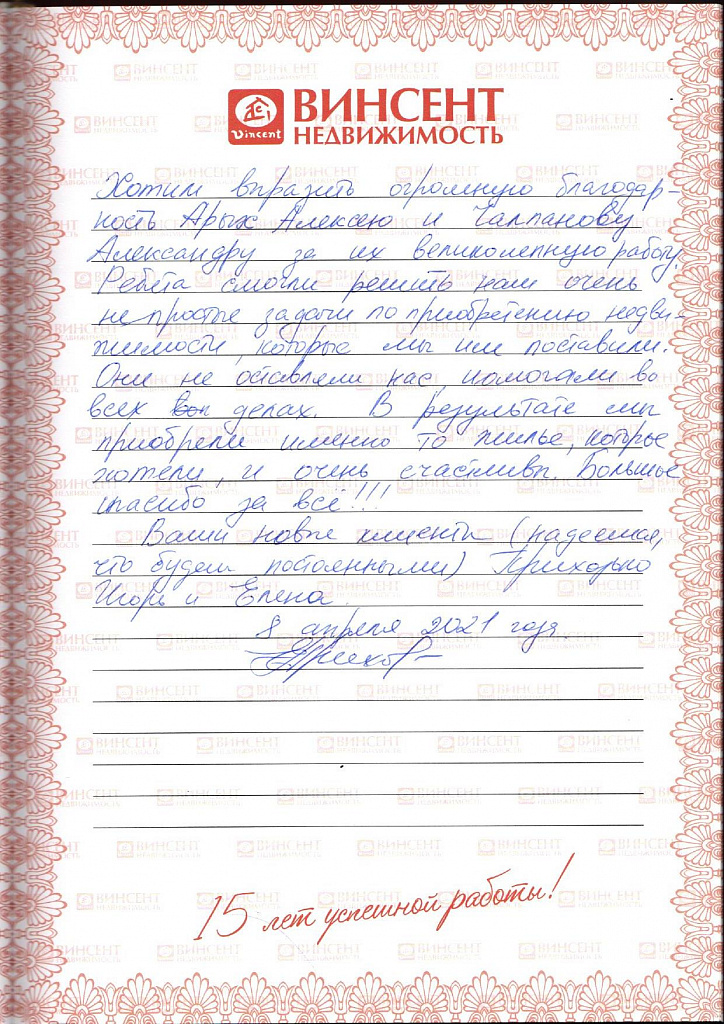 Vincent
ВИНСЕНТ
НЕДВИЖИМОСТЬ
Хотим выразить огромную благодар-
ность Арых Алексею и Чаппанову
Александру за их великолепную работу.
Ребята смогли решить нам очень
не простые задачи по приобретению недви-
жимости, которые мы им поставили.
Они не оставляли нас, помогали во
всех делах. В результате мы
приобрели именно то жилье, которое
хотели, и очень счастливы. Большое
спасибо за всё!!!
Ваши новые клиенты (надеемся,
что будем постоянными) Приходько
Игорь и Елена.
8 апреля 2021 года
15 лет успешной работы!